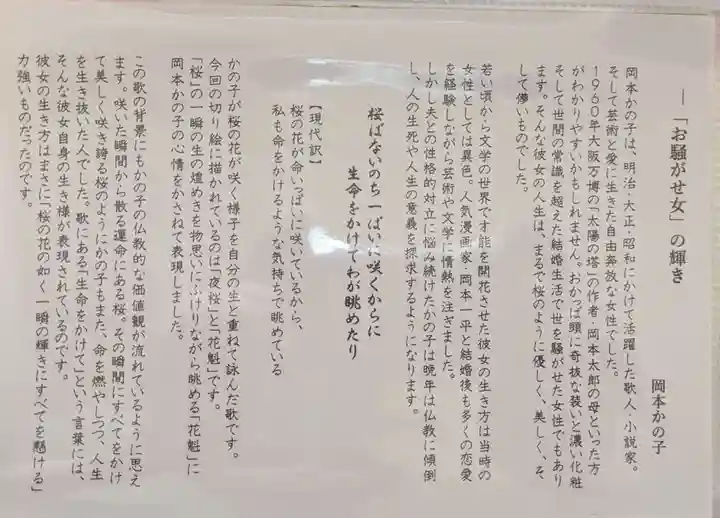 ―「お騒がせ女」の輝き
岡本かの子
岡本かの子は、明治・大正・昭和にかけて活躍した歌人・小説家。
そして芸術と愛に生きた自由奔放な女性でした。
1960年大阪万博の「太陽の塔」の作者・岡本太郎の母といった方
がわかりやすいかもしれません。おかっぱ頭に奇抜な装いと濃い化粧
そして世間の常識を超えた結婚生活で世を騒がせた女性でもあり
ます。そんな彼女の人生は、まるで桜のように優しく、美しく、そ
して儚いものでした。
若い頃から文学の世界で才能を開花させた彼女の生き方は当時の
女性としては異色。人気漫画家・岡本一平と結婚後も多くの恋愛
を経験しながら芸術や文学に情熱を注ぎました。
しかし夫との性格的対立に悩み続けたかの子は晩年は仏教に傾倒
し、人の生死や人生の意義を探求するようになります。
桜ばないのち一ぱいに咲くからに
生命をかけてわが眺めたり
【現代訳】
桜の花が命いっぱいに咲いているから、
私も命をかけるような気持ちで眺めている
かの子が桜の花が咲く様子を自分の生と重ねて詠んだ歌です。
今回の切り絵に描かれているのは「夜桜」と「花魁」です。
「桜」の一瞬の生の煌めきを物思いにふけりながら眺める「花魁」に
岡本かの子の心情をかさねて表現しました。
この歌の背景にもかの子の仏教的な価値観が流れているように思え
ます。咲いた瞬間から散る運命にある桜。その瞬間にすべてをかけ
て美しく咲き誇る桜のようにかの子もまた、命を燃やしつつ、人生
を生き抜いた人でした。歌にある「生命をかけて」という言葉には、
そんな彼女自身の生き様が表現されているのです。
彼女の生き方はまさに「桜の花の如く一瞬の輝きにすべてを懸ける」
力強いものだったのです。